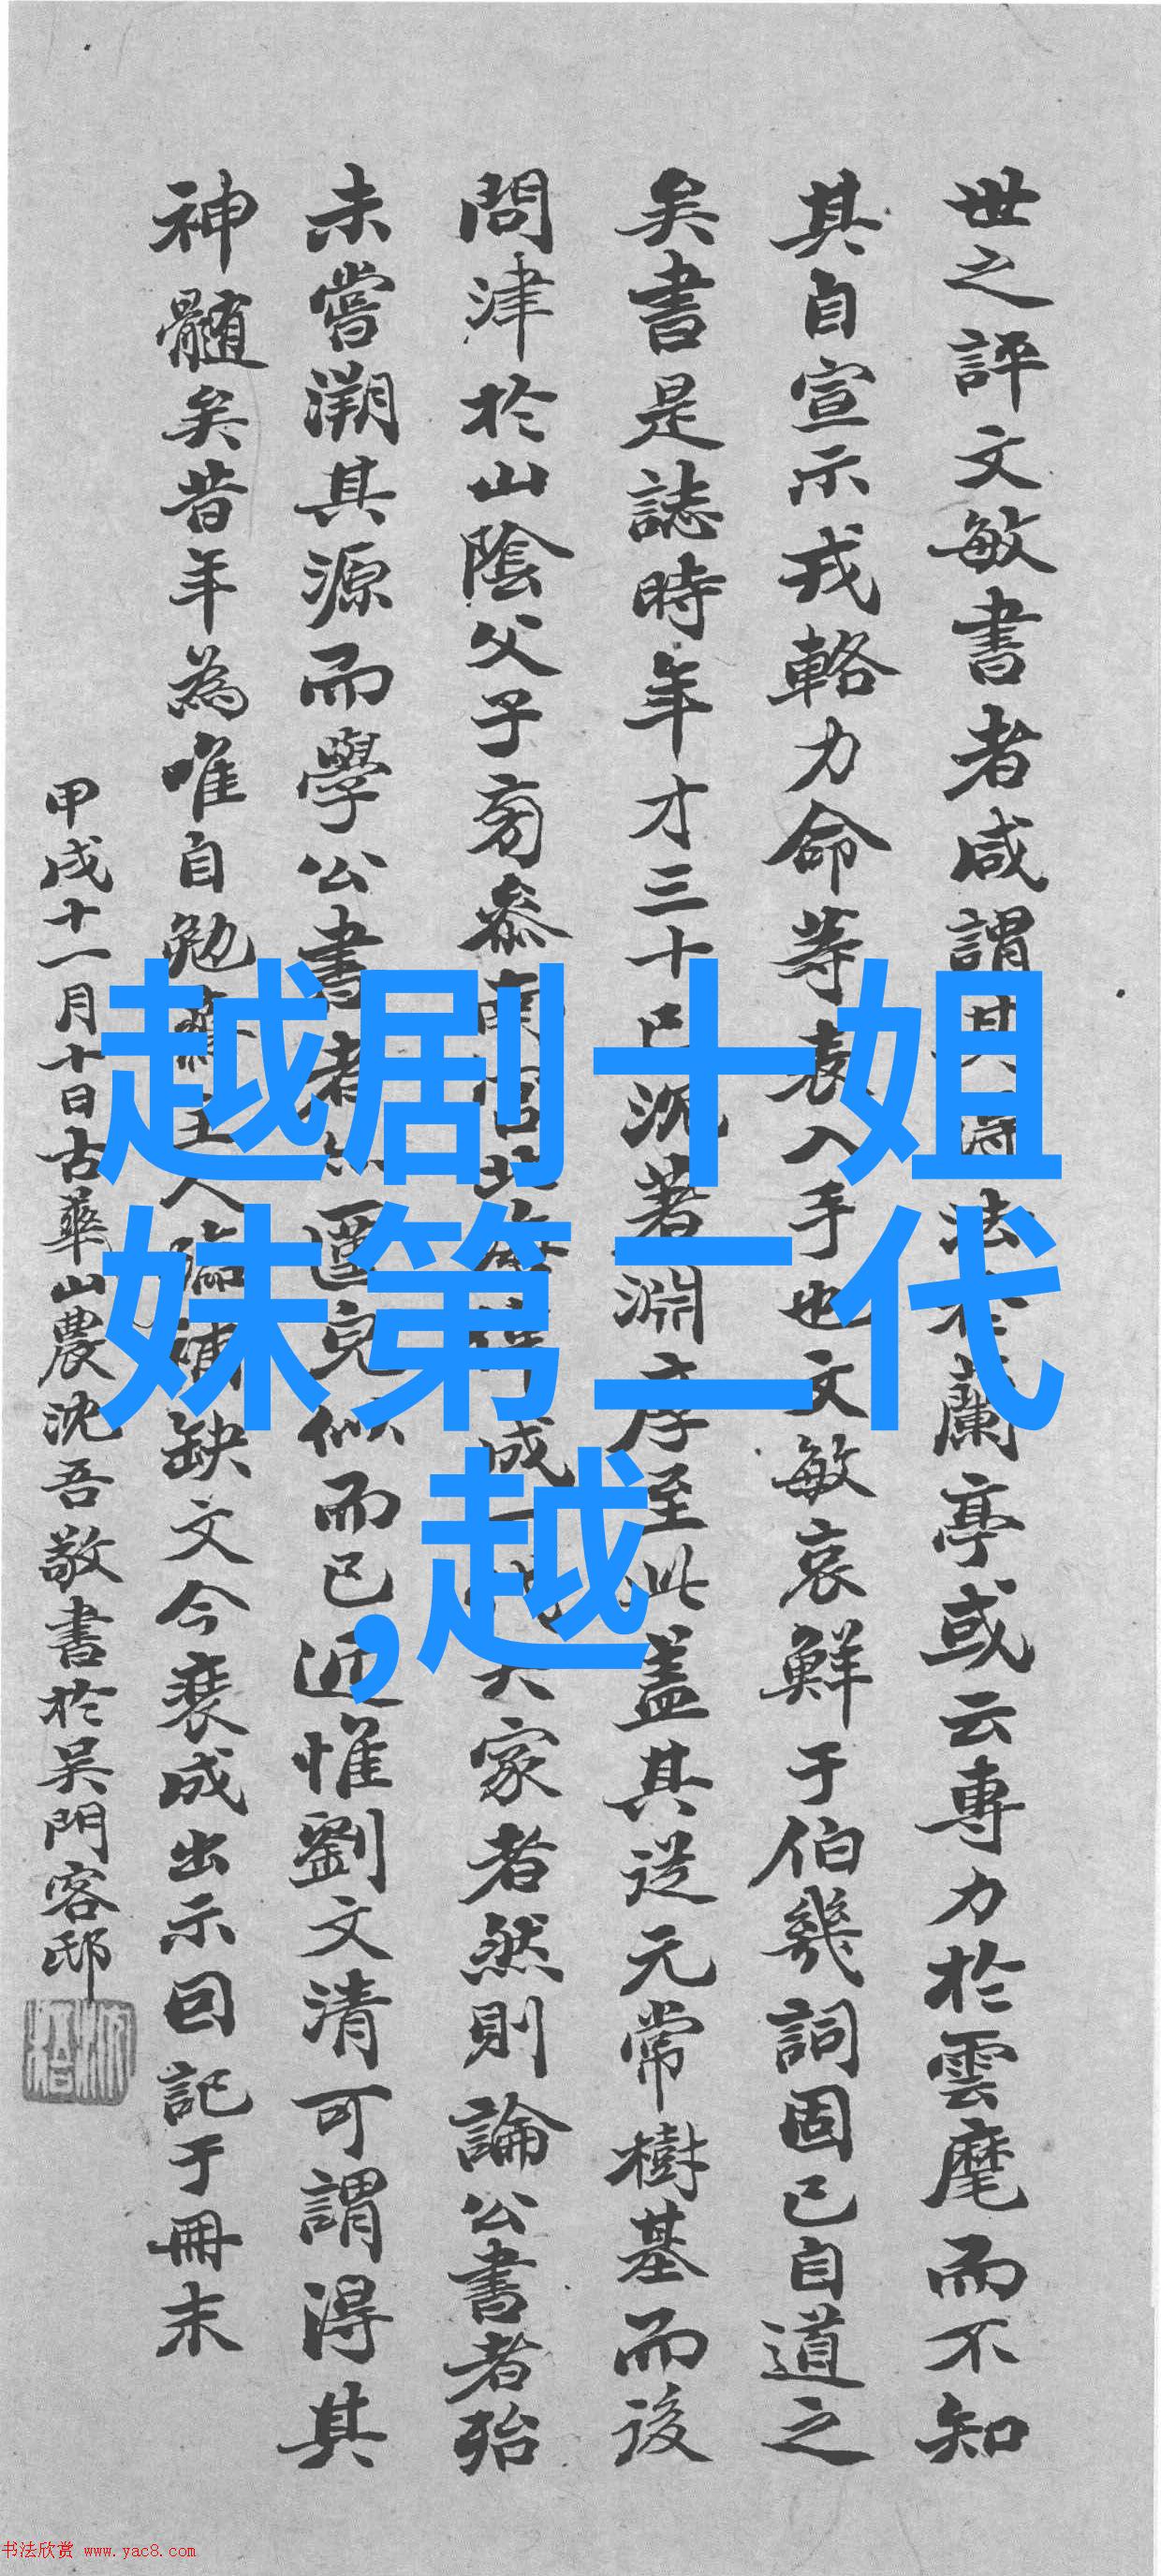 世之評文敏書者咸謂其得法於蘭亭或云專力於雲麾而不知
其自宣示戎輅力命等表入手也文敏哀鮮于伯幾詞固已自道之
矣書是誌時年才三十已沉著淵庤至此蓋其從元常樹基而後
問津於山陰父子旁參南宮北海 成一 大家者然則論公書者殆
未嘗溯其源而學公書者 貌似而已近惟劉文清可謂得其
神髓矣昔年為唯自勉 主人臨補缺文今裝成出示回記于冊末
甲戌十一月十日古華山農沈吾敬書於吴門客邸
越剧十姐
妹第二代
,越
书法欣赏 www.yac8.com